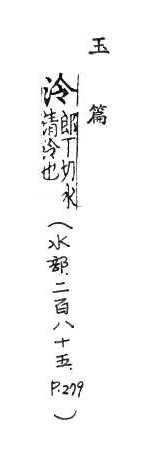 玉篇
泠
郎丁切水
清泠也
(水部.二百八十五.P.279)